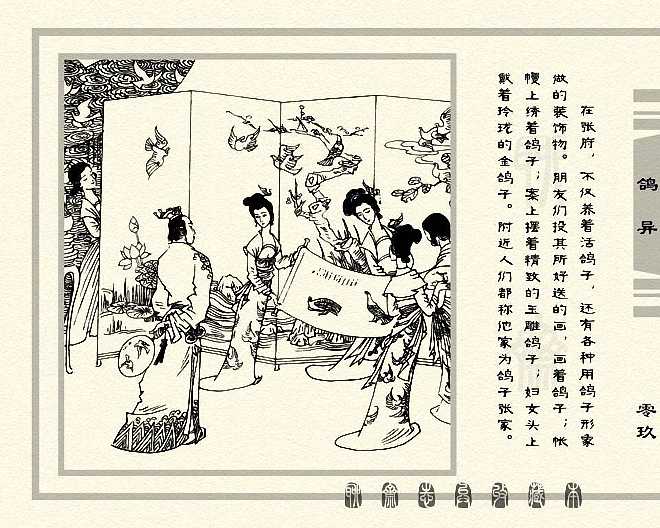 在张府，不仅养着活鸽子，还有各种用鸽子形象
做的装饰物。朋友们投其所好送的画，画着鸽子；帐
幔上绣着鸽子；案上摆着精致的玉雕鸽子；妇女头上
戴着玲珑的金鸽子。附近人们都称他家为鸽子张家。
鸽异
零玖
聊斋志异收藏本